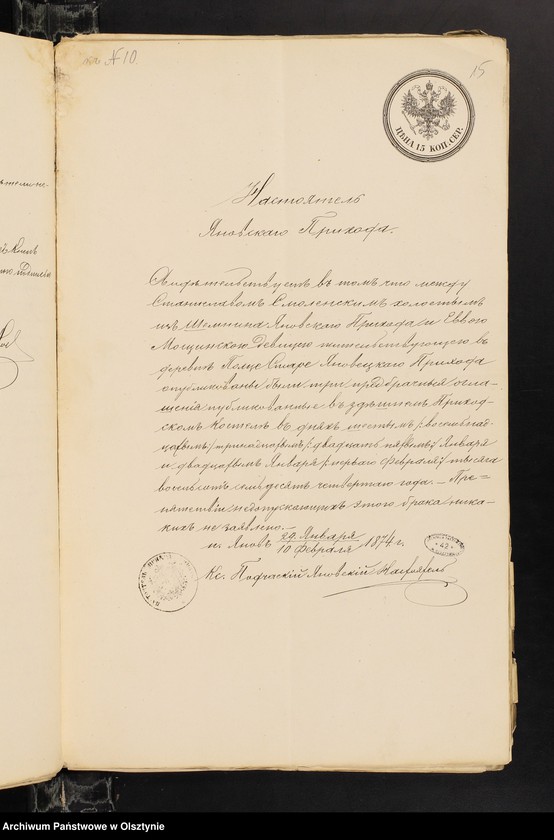 № 10.
15
ЦѢНА 15 КОП. СЕР.
Настоятель
Яновскаго Прихода.
Свидѣтельствуетъ въ томъ что между
Станиславомъ Смоленскимъ холостымъ
изъ Яновскаго Прихода и Еввою
Мощинскою Девицею жительствующею въ
деревнѣ Старе Яновецкаго Прихода
опубликованы были три предбрачныя огла-
шенія публикованные въ здѣшнемъ Приход-
скомъ Костелѣ въ дняхъ шестымъ /: восемнад-
цатымъ/ тринадцатымъ /: двадцать пятымъ/ Января
и двадцатымъ Января /: перваго Февраля/ тысяча
восемьсотъ семьдесятъ четвертаго года. — Пре-
пятствій недопускающихъ этого брака ника-
кихъ не заявлено. —
п. Яновъ 29 Января / 10 Февраля 1874 г.
42
Кс. Яновскій Настоятель
Archiwum Państwowe w Olsztynie